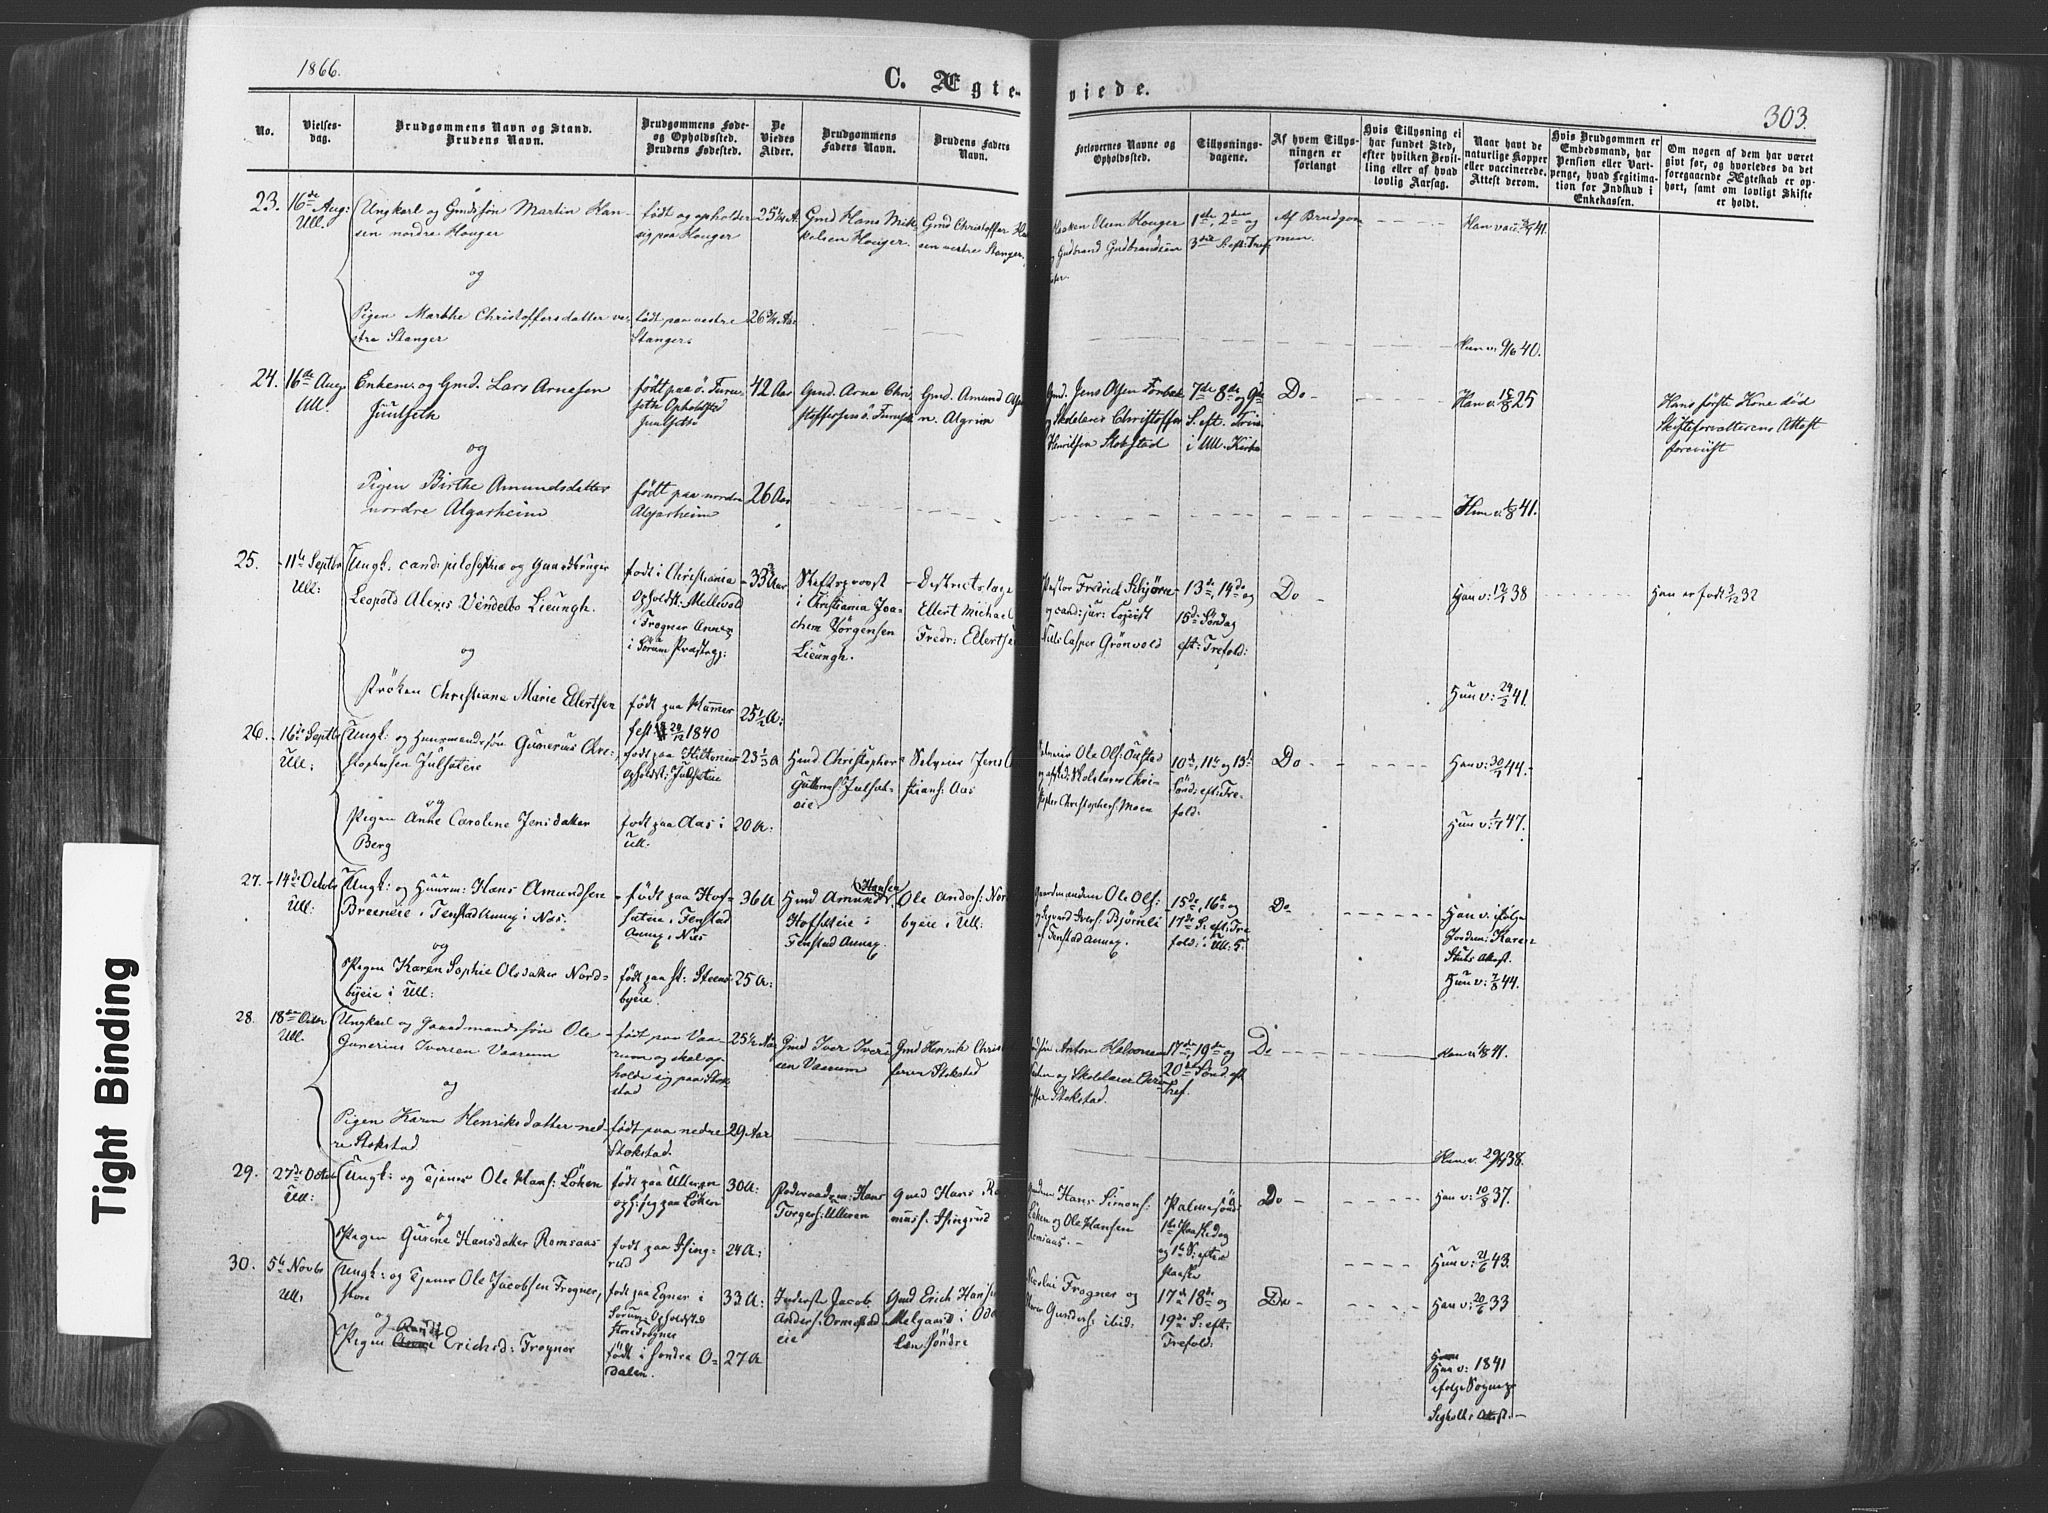 1866.
C. Ægteviede.
303.
No.
Vielsesdag.
Brudgommens Navn og Stand.
Brudens Navn.
Brudgommens Føde-
og Opholdssted.
Brudens Fødested.
De
Viedes
Alder.
Brudgommens
Faders Navn.
Brudens Faders
Navn.
Forlovernes Navne og
Opholdssted.
Tillysnings-
dagene.
Af hvem Tillys-
ningen er
forlangt
Hvis Tillysning ei
har fundet Sted,
efter hvilken Bevil-
ling eller af hvad
lovlig Aarsag.
Naar havt de
naturlige Kopper
eller vaccinerede.
Attest derom.
Hvis Brudgommen er
Embedsmand, har
Pension eller Vart-
penge, hvad Legitima-
tion for Indskud i
Enkekassen.
Om nogen af dem har været
gift før, og hvorledes da det
foregaaende Ægteskab er op-
hørt, samt om lovligt Skifte
er holdt.
23.
16de Aug:
Ull.
Ungkarl og Gmdssøn Martin Han-
sen nordre Houger
og
Pigen Marthe Christoffersdatter ve-
stre Stanger
født og opholder
sig paa Houger
født paa vestre
Stanger
25¼ A.
26¾ Aar
Gmd Hans Mik-
kelsen Houger.
Gmd Christoffer
sen vestre Stanger
Haaken Olsen Houger
Gudbrand Gudbrandsen
1ste, 2den og
3die S. eft. Tref
Af Brudgom
men.
Han vac: 41.
Hun v. 9/6 40.
24.
16de Aug.
Ull.
Enkem. og Gmd. Lars Arnesen
Juulseth
og
Pigen Birthe Amundsdatter
nordre Algarheim
født paa ø. Furu-
seth Opholdssted
Juulseth
født paa nordre
Algarheim
42 Aar
26 Aar
Gmd. Arne Chri
stoffersen ø. Furuseth
Gmd. Amund
n. Algarim
Gmd. Jens Olsen
Skolelærer Christoffer
Henriksen Stokstad
7de 8de og 9de
S. eft. Trin
i Ull. Kirke
Do
Han v. 15/8 25
Hun v. 6/8 41.
Hans første Kone død
Skifteforvalterens Attest
foreviist
25.
11te Septbr
Ull:
Ungk: cand: pilosophiæ og Gaardbruger
Leopold Alexis Vendelbo Lieungh.
og
Frøken Christiane Marie Ellertsen
født i Christiania
Opholdst: Mellevold
i Frogner Annex
i Sørum Præstegj:
født paa Hammer
fest 20/12 1840
33 Aar
25½ A:
Stiftsprovst
i Christiania Joa-
chem Jørgensen
Lieungh.
Destrictslæge
Ellert Michael
Fredr: Ellertsen
Pastor Fredrick
og cand: jur:
Niels Casper Grönvold
13de, 14de og
15de Søndag
eft: Trefold:
Do
Han v: 12/7 38
Hun v: 24/2 41.
Han er født 3/12 32
26.
16de Septbr
Ull:
Ungk: og Huusmandssøn Gunerius Chri-
stophersen Julsæteie
og
Pigen Anne Caroline Jensdatter
Berg
født paa
opholdst: Julsæteie
født paa Aas i
Ull:
23⅓ A
20 A:
Hmd Christopher
Julsæt-
eie
Selveier Jens
stians: Aas
Ole Ols:
Skolelærer Chri-
stopher Christophers: Moen
10de, 11te og 13de
Sönd: eft: Tre-
fold:
Do
Han v: 30/7 44.
Hun v: 1/7 47.
27.
14de Octobr
Ull:
Ungk: og Huusm: Hans Amundsen
Breeneie i Fenstad Annex i Næs.
og
Pigen Karen Sophie Olsdatter Nord-
byeie i Ull:
født paa Hof-
sæteie, Fenstad
Annex i Næs
født paa st: Steens-
byeie.
36 A
25 A:
Hmd Amund Hansen
Hofsæteie i
Fenstad Annex
Ole Anders: Nord
byeie i Ull:
Gaardmændene Ole Ols:
og Iver Ivers: Bjørnli
af Fenstad Annex.
15de, 16de og
17de S: eft: Tre
fold: i Ull: S.
Do
Han v. ifølge
Jordem: Karen
Stubs Attest.
Hun v: 7/8 44.
28.
18de Octbr
Ull.
Ungkarl og Gaardmandssøn Ole
Gunerius Iversen Vaarum
og
Pigen Karen Henriksdatter ned-
re Stokstad
født paa Vaa-
rum og skal op-
holde sig paa Stok-
stad
født paa nedre
Stokstad.
25½ Aar
29 Aar
Gmd Iver Iver-
sen Vaarum
Gmd Henrik Christ
fersen Stokstad
Anton Halvorsen
og Skolelærer Chri-
stoffer Stokstad.
17de, 19de og
20de Sönd. eft
Tref.
Do
Han v. 41.
Hun v. 38.
29.
27de Octobr
Ull:
Ungk: og Tjener Ole Hans: Löken
og
Pigen Gurine Hansdatter Romsaas
født paa Ulleren
oph: sig paa Löken
født paa Ising-
rud
30 A:
24 A:
Hans
Torgers: Ulleren
Gmd Hans Ra
muss: Isingrud
Hans Simons:
Löken og Ole Hansen
Romsaas.
Palmesönd
1ste Paaskedag
og 1te S: efter
Paaske
Do
Han v: 10/8 37.
Hun v: 21/6 43.
30.
5te Novbr
Ull:
Ungk: og Tjener Ole Jacobsen Frogner,
store
og
Pigen Randi Erichsd: Frogner
født paa Egner i
Sørum Opholdssted
store Frogne
født i söndre O-
dalen.
33 A:
27 A
Inderste Jacob
Anders: Ormestad
eie
Gmd Erich Hans
Melgaard i Oda
len söndre
Nicolai Frogner og
Gunders: ibid:
17de 18de og
19de S: eft:
Trefold:
Do
Han v: 20/6 33
Hun v: 1841
efølge Sogne
Seghell: Attest.
Tight Binding